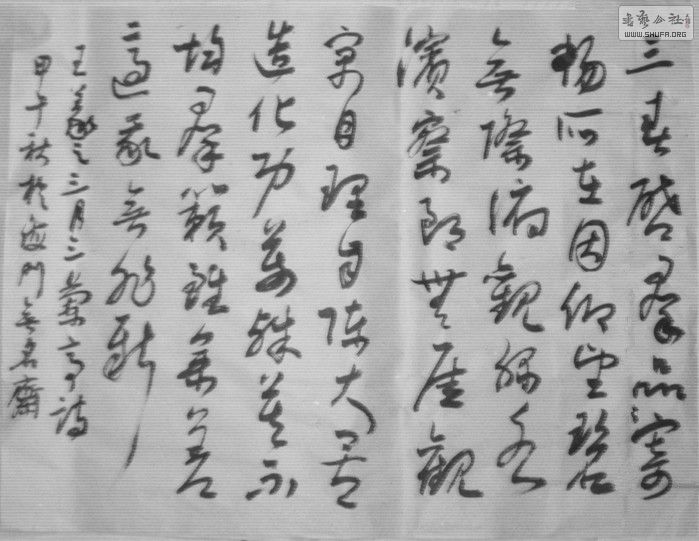 三春啟羣品寄
暢所在因仰望碧
無際俯觀綠水
濱寥朗無厓觀
寓目理自陳大矣
造化功萬殊莫不
均羣籟雖參差
適我無非新
王羲之三月三蘭亭詩
甲午秋於海門無名齋
書藝公社
WWW.SHUFA.ORG